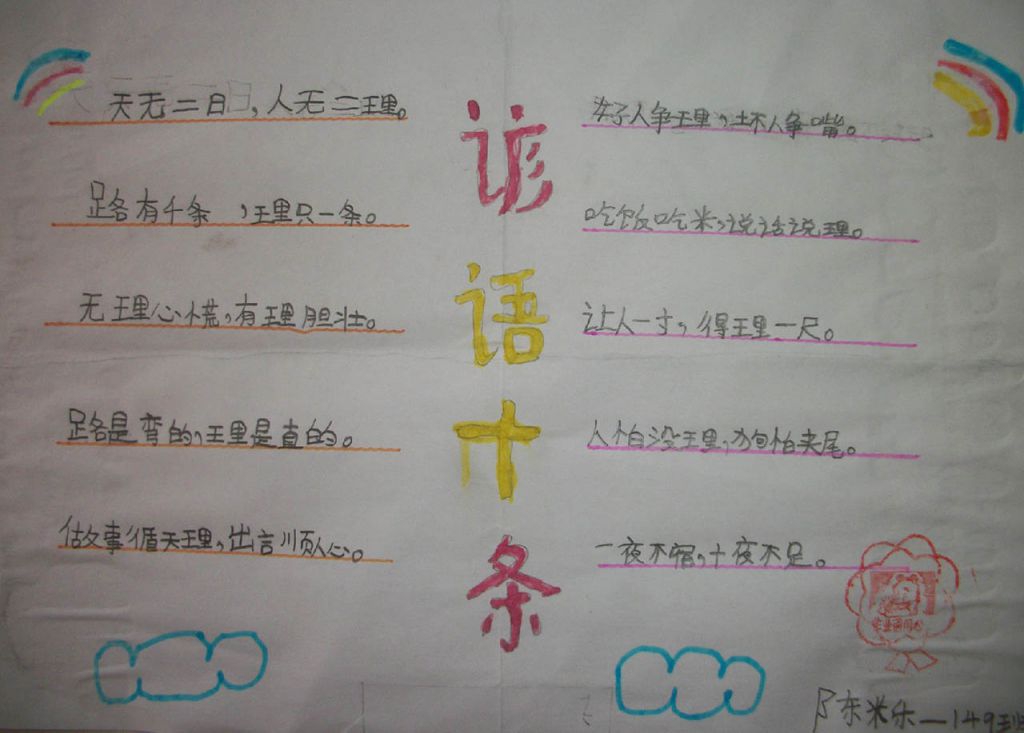 谚语十条
天无二日，人无二理。
路有千条，理只一条。
无理心慌，有理胆壮。
路是弯的，理是直的。
做事循天理，出言顺人心。
好人争理，坏人争嘴。
吃饭吃米，说话说理。
让人一寸，得理一尺。
人怕没理，狗怕夹尾。
一夜不宿，十夜不足。
陈米乐—149班